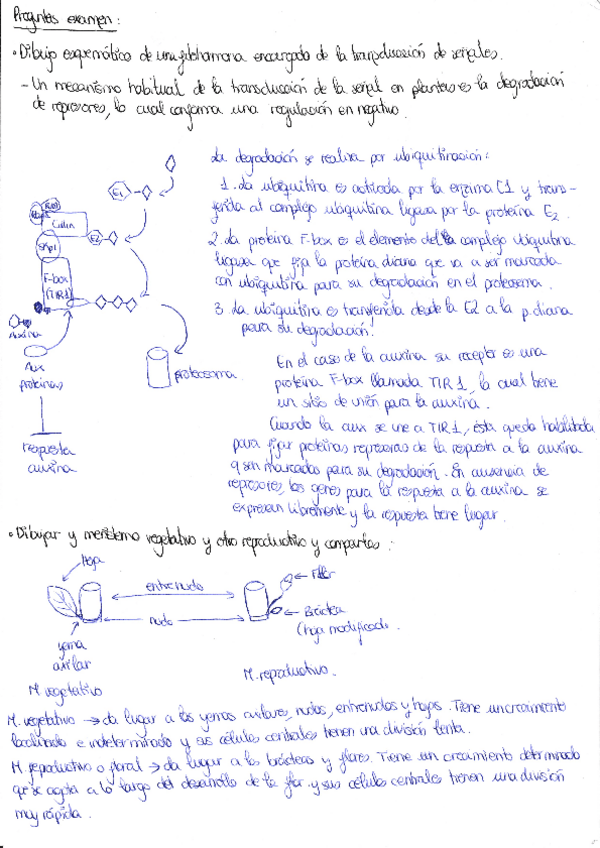 Preguntas examen:
• Dibujo esquemático de una fitohormona encargada de la transducción de señales.
- Un mecanismo habitual de la transducción de la señal en plantas es la degradación
de represores, lo cual conforma una regulación en negativo.
La degradación se realiza por ubiquitinación:
1. La ubiquitina es activada por la enzima E1 y trans-
ferida al complejo ubiquitina ligasa por la proteína E2.
2. La proteína F-box es el elemento del complejo ubiquitina
ligasa que fija la proteína diana que va a ser marcada
con ubiquitina para su degradación en el proteasoma.
3. La ubiquitina es transferida desde la E2 a la p. diana
para su degradación.
En el caso de la auxina su receptor es una
proteína F-box llamada TIR1, la cual tiene
un sitio de unión para la auxina.
Cuando la aux se une a TIR1, ésta queda habilitada
para fijar proteínas represoras de la respuesta a la auxina
q son marcadas para su degradación. En ausencia de
represores, los genes para la respuesta a la auxina se
expresan libremente y la respuesta tiene lugar.
E1
Cullin
E2
SKP1
F-box
(TIR1)
Auxina
Aux
proteínas
proteasoma
respuesta
auxina
• Dibujar y meristemo vegetativo y otro reproductivo y compartas:
Hoja
entrenudo
nudo
yema
axilar
M. vegetativo
Flor
Bráctea
(hoja modificada.
M. reproductivo.
M. vegetativo → da lugar a las yemas axilares, nudos, entrenudos y hojas. Tiene un crecimiento
localizado e indeterminado y sus células centrales tienen una división lenta.
M. reproductivo o floral → da lugar a las brácteas y flores. Tiene un crecimiento determinado
que se agota a lo largo del desarrollo de la flor y sus células centrales tienen una división
muy rápida.